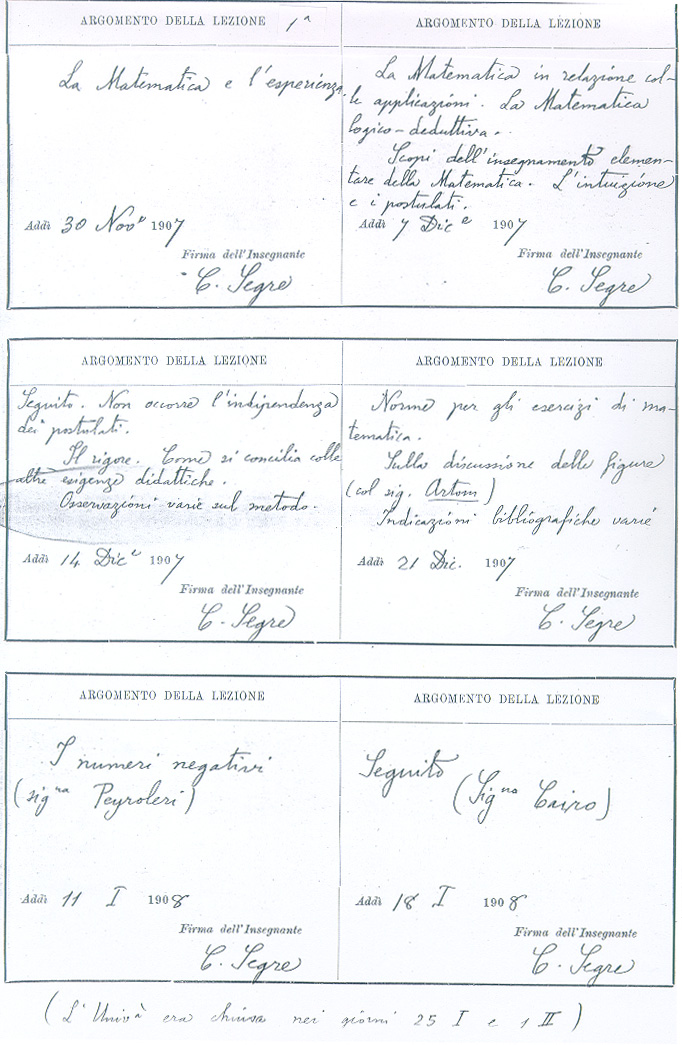 ARGOMENTO DELLA LEZIONE 1ª
La Matematica e l'esperienza.
Addì 30 Nov.e 1907
Firma dell'Insegnante
C. Segre
ARGOMENTO DELLA LEZIONE
La Matematica in relazione col-
le applicazioni. La Matematica
logico-deduttiva.
Scopi dell'insegnamento elemen-
tare della Matematica. L'intuizione
e i postulati.
Addì 7 Dic.e 1907
Firma dell'Insegnante
C. Segre
ARGOMENTO DELLA LEZIONE
Seguito. Non occorre l'indipendenza
dei postulati.
Il rigore. Come si concilia colle
altre esigenze didattiche.
Osservazioni varie sul metodo.
Addì 14 Dic.e 1907
Firma dell'Insegnante
C. Segre
ARGOMENTO DELLA LEZIONE
Norme per gli esercizi di ma-
tematica.
Sulla discussione delle figure
(col sig. Artom)
Indicazioni bibliografiche varie
Addì 21 Dic. 1907
Firma dell'Insegnante
C. Segre
ARGOMENTO DELLA LEZIONE
I numeri negativi
(sig.na Peyroleri)
Addì 11 I 1908
Firma dell'Insegnante
C. Segre
ARGOMENTO DELLA LEZIONE
Seguito
(Sig.na Cairo)
Addì 18 I 1908
Firma dell'Insegnante
C. Segre
(L'Univ.à era chiusa nei giorni 25 I e 1 II)